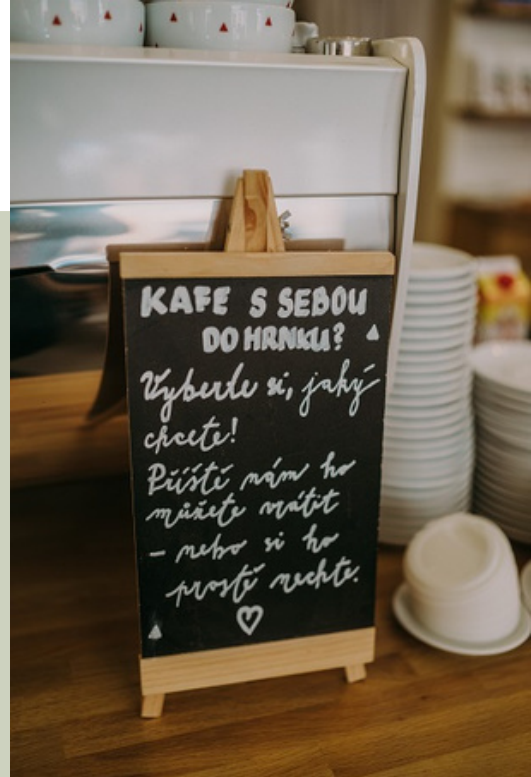 KAFE S SEBOU
DO HRNKU?
Vyberte si, jaký
chcete!
Příště nám ho
můžete vrátit
- nebo si ho
prostě nechte.